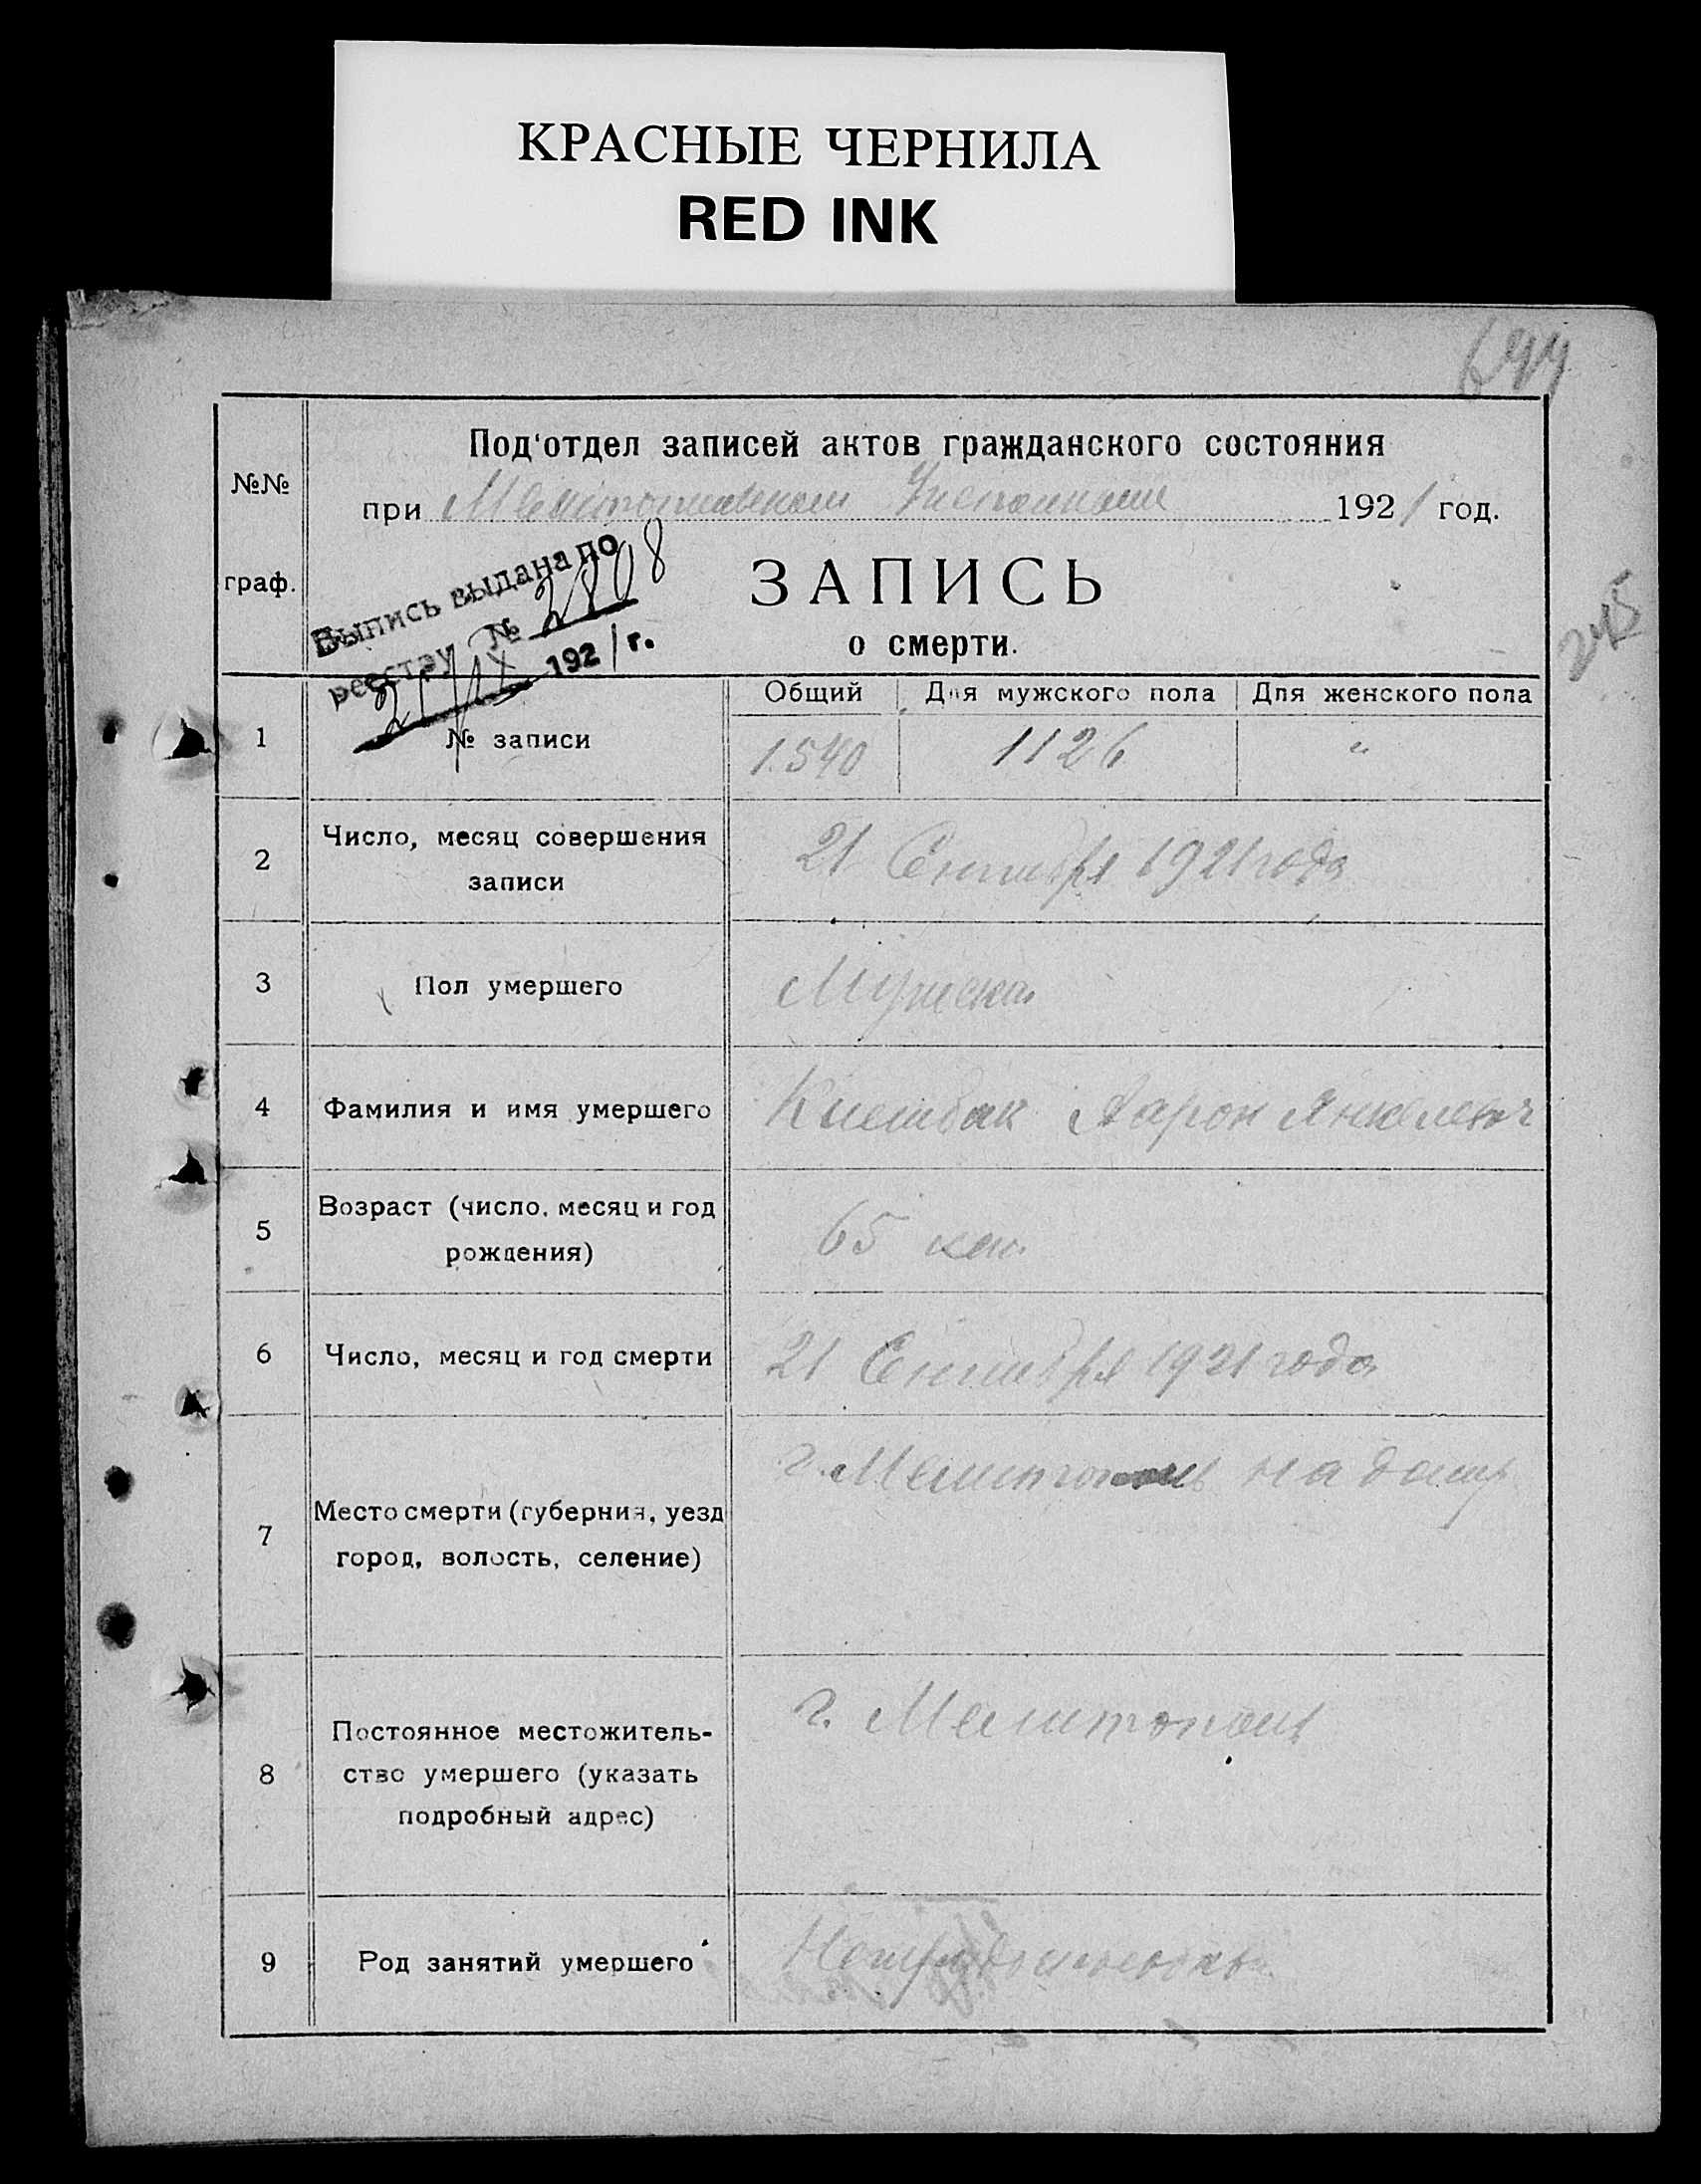 КРАСНЫЕ ЧЕРНИЛА
RED INK
644
№№
граф.
Под'отдел записей актов гражданского состояния
при Мелитопольском 1921 год.
Выпись выдана по
реестру № 2808
21/IX 1921 г.
ЗАПИСЬ
о смерти.
245
Общий Для мужского пола Для женского пола
1 № записи 1540 1126 "
2 Число, месяц совершения
записи
21 Сентября 1921 года
3 Пол умершего Мужской
4 Фамилия и имя умершего Аарон Янкелевич
5 Возраст (число, месяц и год
рождения)
65 лет
6 Число, месяц и год смерти 21 Сентября 1921 года
7 Место смерти (губерния, уезд
город, волость, селение)
г. Мелитополь на дому
8 Постоянное местожитель-
ство умершего (указать
подробный адрес)
г. Мелитополь
9 Род занятий умершего